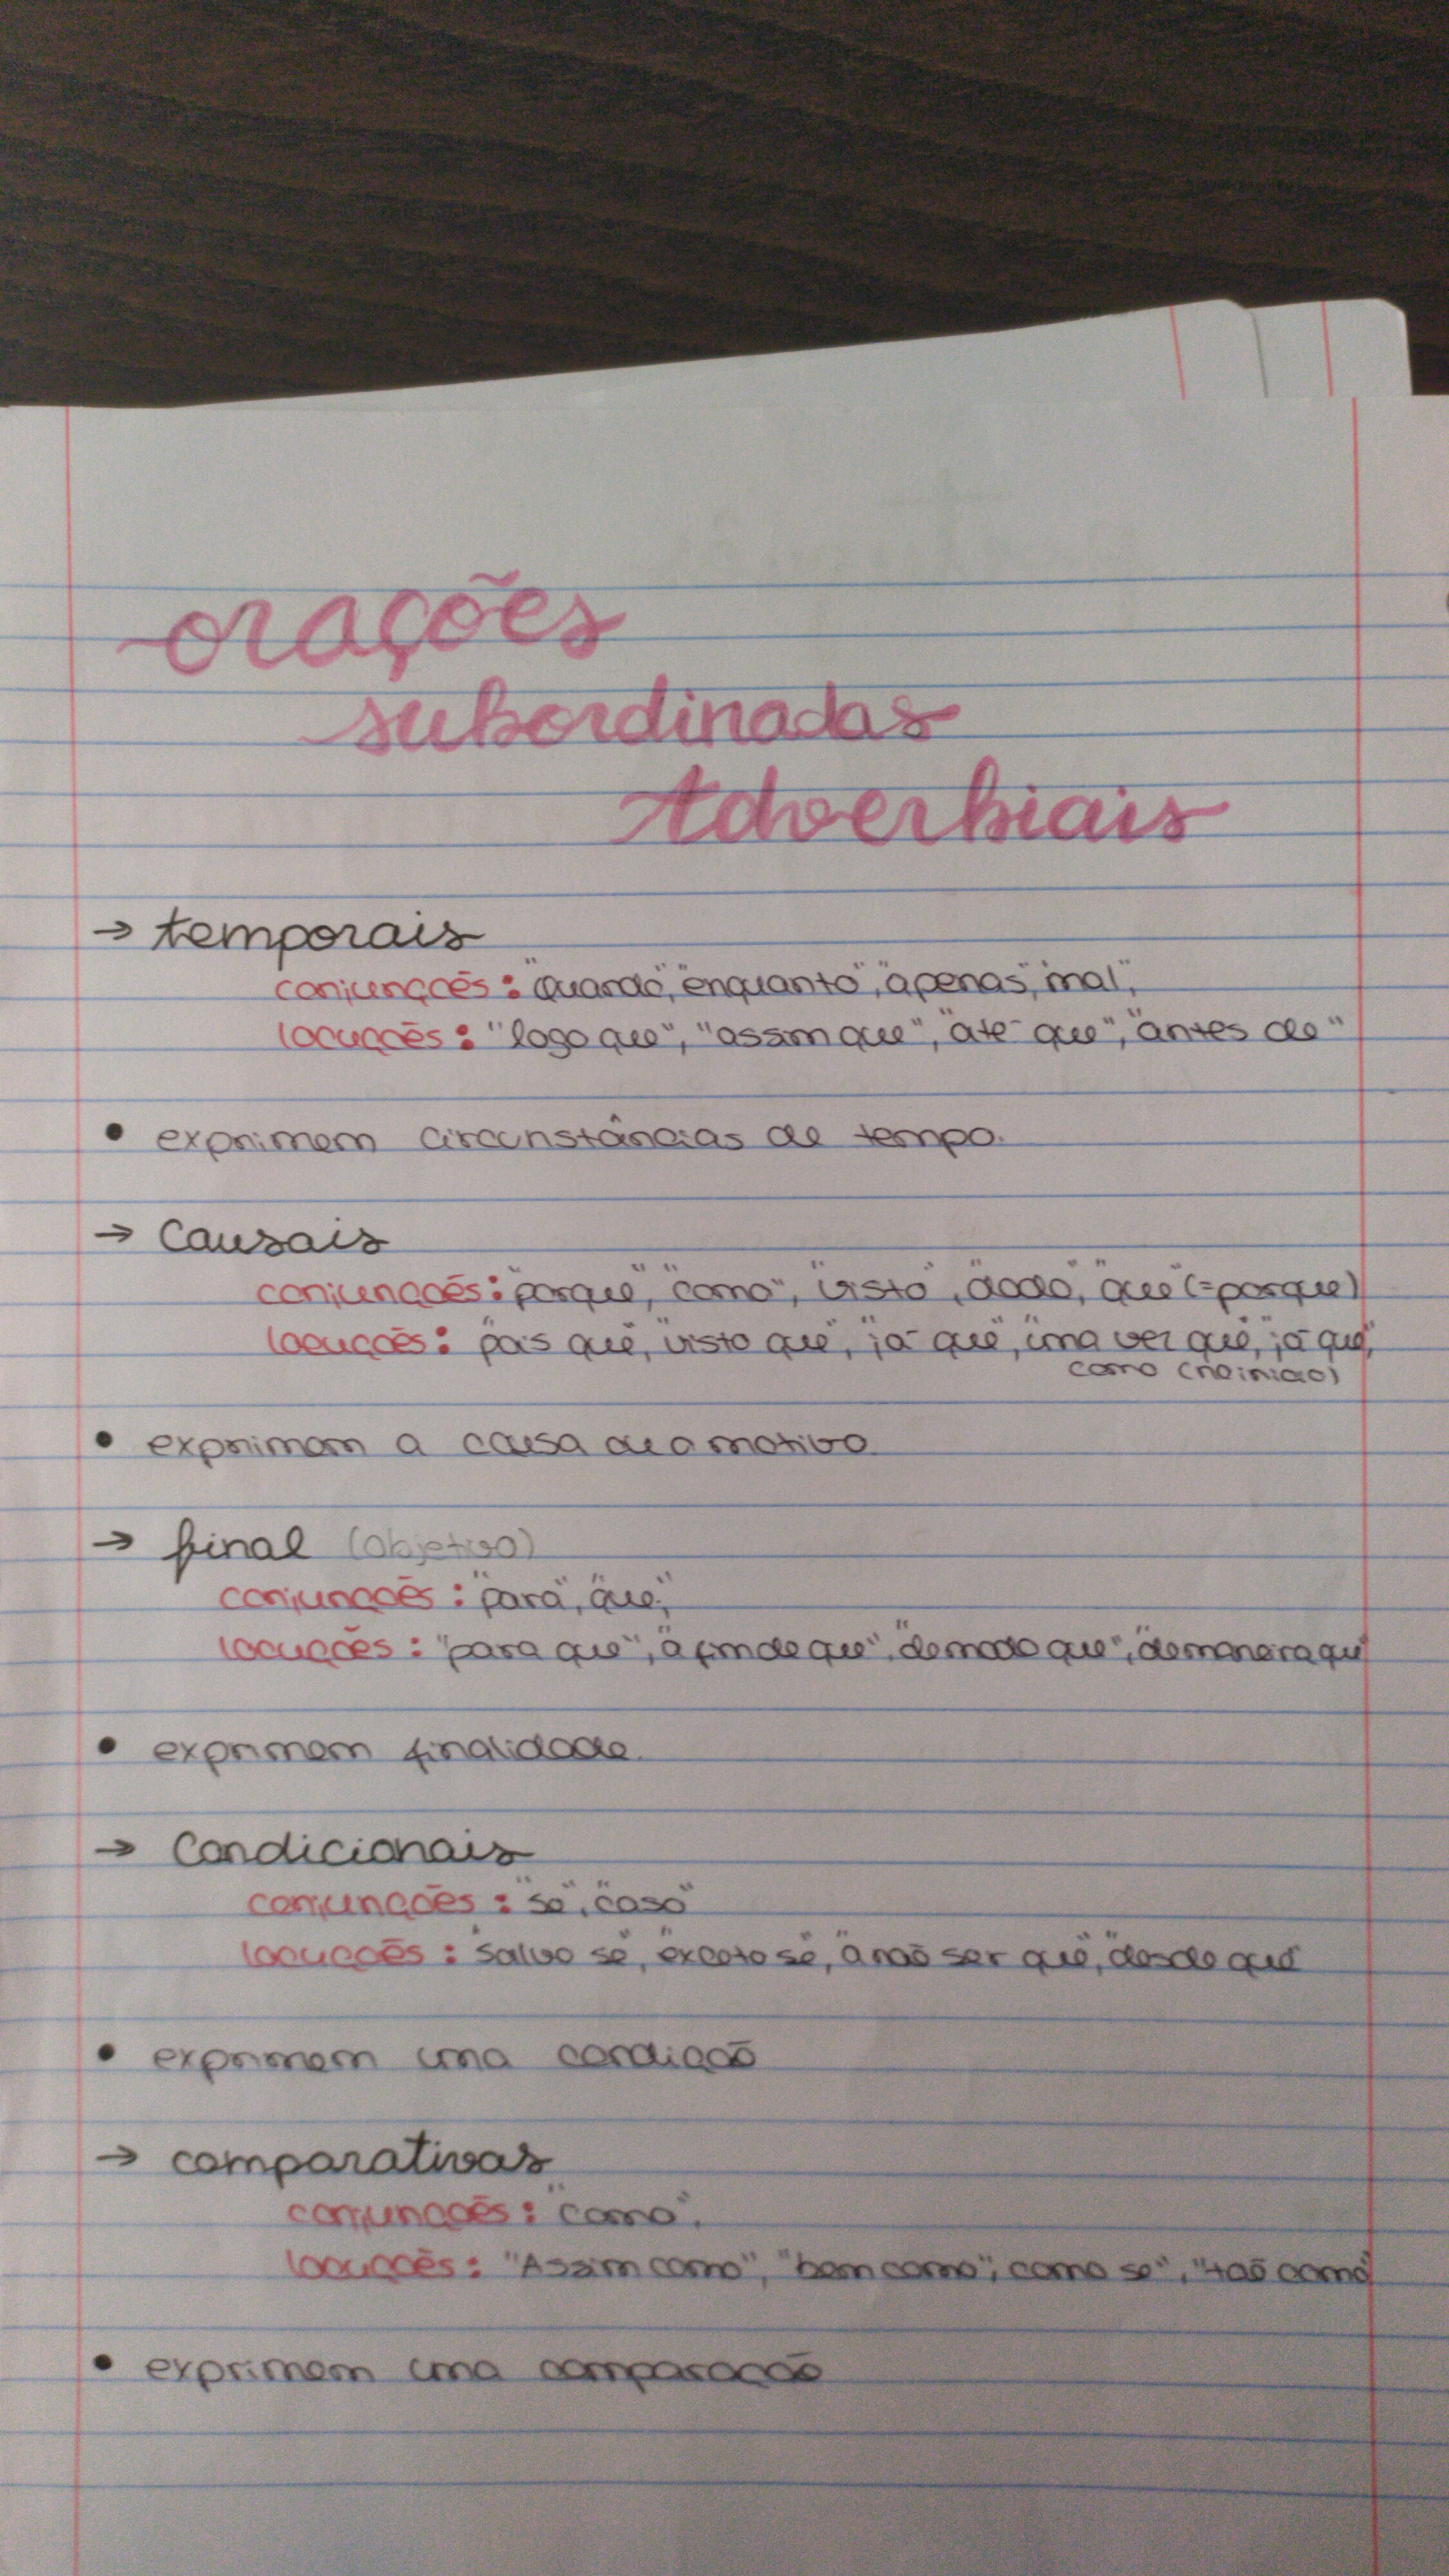 orações
subordinadas
Adverbiais
→ temporais
conjunções: "quando", "enquanto", "apenas", "mal",
locuções: "logo que", "assim que", "até que", "antes de"
• exprimem circunstâncias de tempo.
→ Causais
conjunções: "porque", "como", "visto", "dado", "que" (=porque)
locuções: "pois que", "visto que", "já que", "uma vez que", "já que",
como (no início)
• exprimem a causa ou o motivo
→ final (objetivo)
conjunções: "para", "que",
locuções: "para que", "a fim de que", "de modo que", "de maneira que"
• exprimem finalidade.
→ Condicionais
conjunções: "se", "caso"
locuções: "salvo se", "exceto se", "a não ser que", "desde que"
• exprimem uma condição
→ comparativas
conjunções: "como".
locuções: "Assim como", "bem como", "como se", "tão como"
• exprimem uma comparação